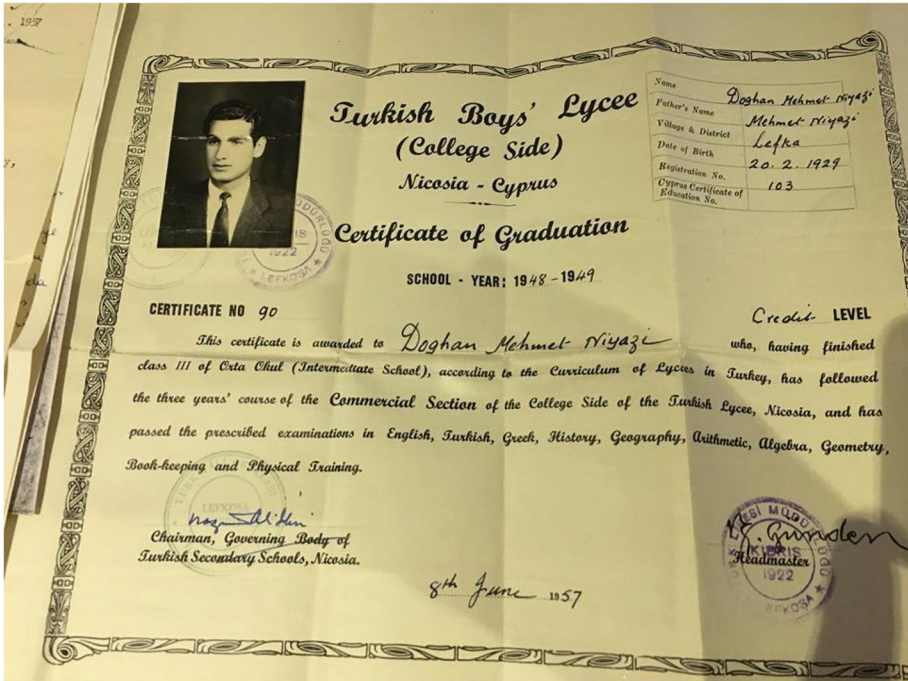 1957
Turkish Boys' Lycee
(College Side)
Nicosia - Cyprus
Certificate of Graduation
SCHOOL - YEAR: 1948 - 1949
Name Doghan Mehmet Niyazi
Father's Name Mehmet Niyazi
Village & District Lefka
Date of Birth 20. 2. 1929
Registration No. 103
Cyprus Certificate of
Education No.
CERTIFICATE NO 90
Credit LEVEL
This certificate is awarded to Doghan Mehmet Niyazi who, having finished
class III of Orta Okul (Intermediate School), according to the Curriculum of Lycées in Turkey, has followed
the three years' course of the Commercial Section of the College Side of the Turkish Lycee, Nicosia, and has
passed the prescribed examinations in English, Turkish, Greek, History, Geography, Arithmetic, Algebra, Geometry,
Book-keeping and Physical Training.
Chairman, Governing Body of
Turkish Secondary Schools, Nicosia.
Headmaster
8th June 1957
KIBRIS
1922
LEFKOŞA
1922
LEFKOŞA
LEFKOŞA